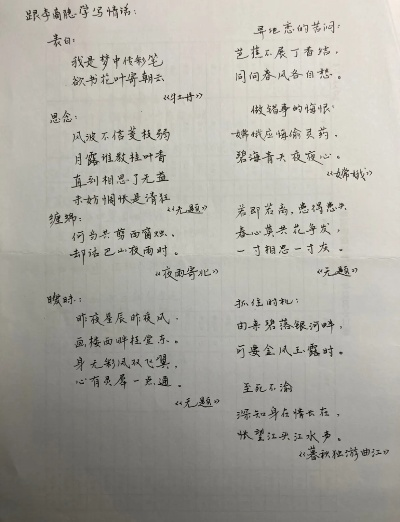 跟李商隐学写情话:
表白:
我是梦中传彩笔
欲书花叶寄朝云
《牡丹》
思念:
风波不信菱枝弱
月露谁教桂叶香
直到相思了无益
未妨惆怅是清狂
《无题》
缠绵:
何当共剪西窗烛,
却话巴山夜雨时。
《夜雨寄北》
暧昧:
昨夜星辰昨夜风,
画楼西畔桂堂东。
身无彩凤双飞翼,
心有灵犀一点通。
《无题》
异地恋的苦闷:
芭蕉不展丁香结,
同向春风各自愁。
做错事的悔恨:
嫦娥应悔偷灵药,
碧海青天夜夜心。
《嫦娥》
若即若离,患得患失
春心莫共花争发,
一寸相思一寸灰。
《无题》
抓住时机:
由来碧落银河畔,
可要金风玉露时。
至死不渝
深知身在情长在,
怅望江头江水声。
《暮秋独游曲江》